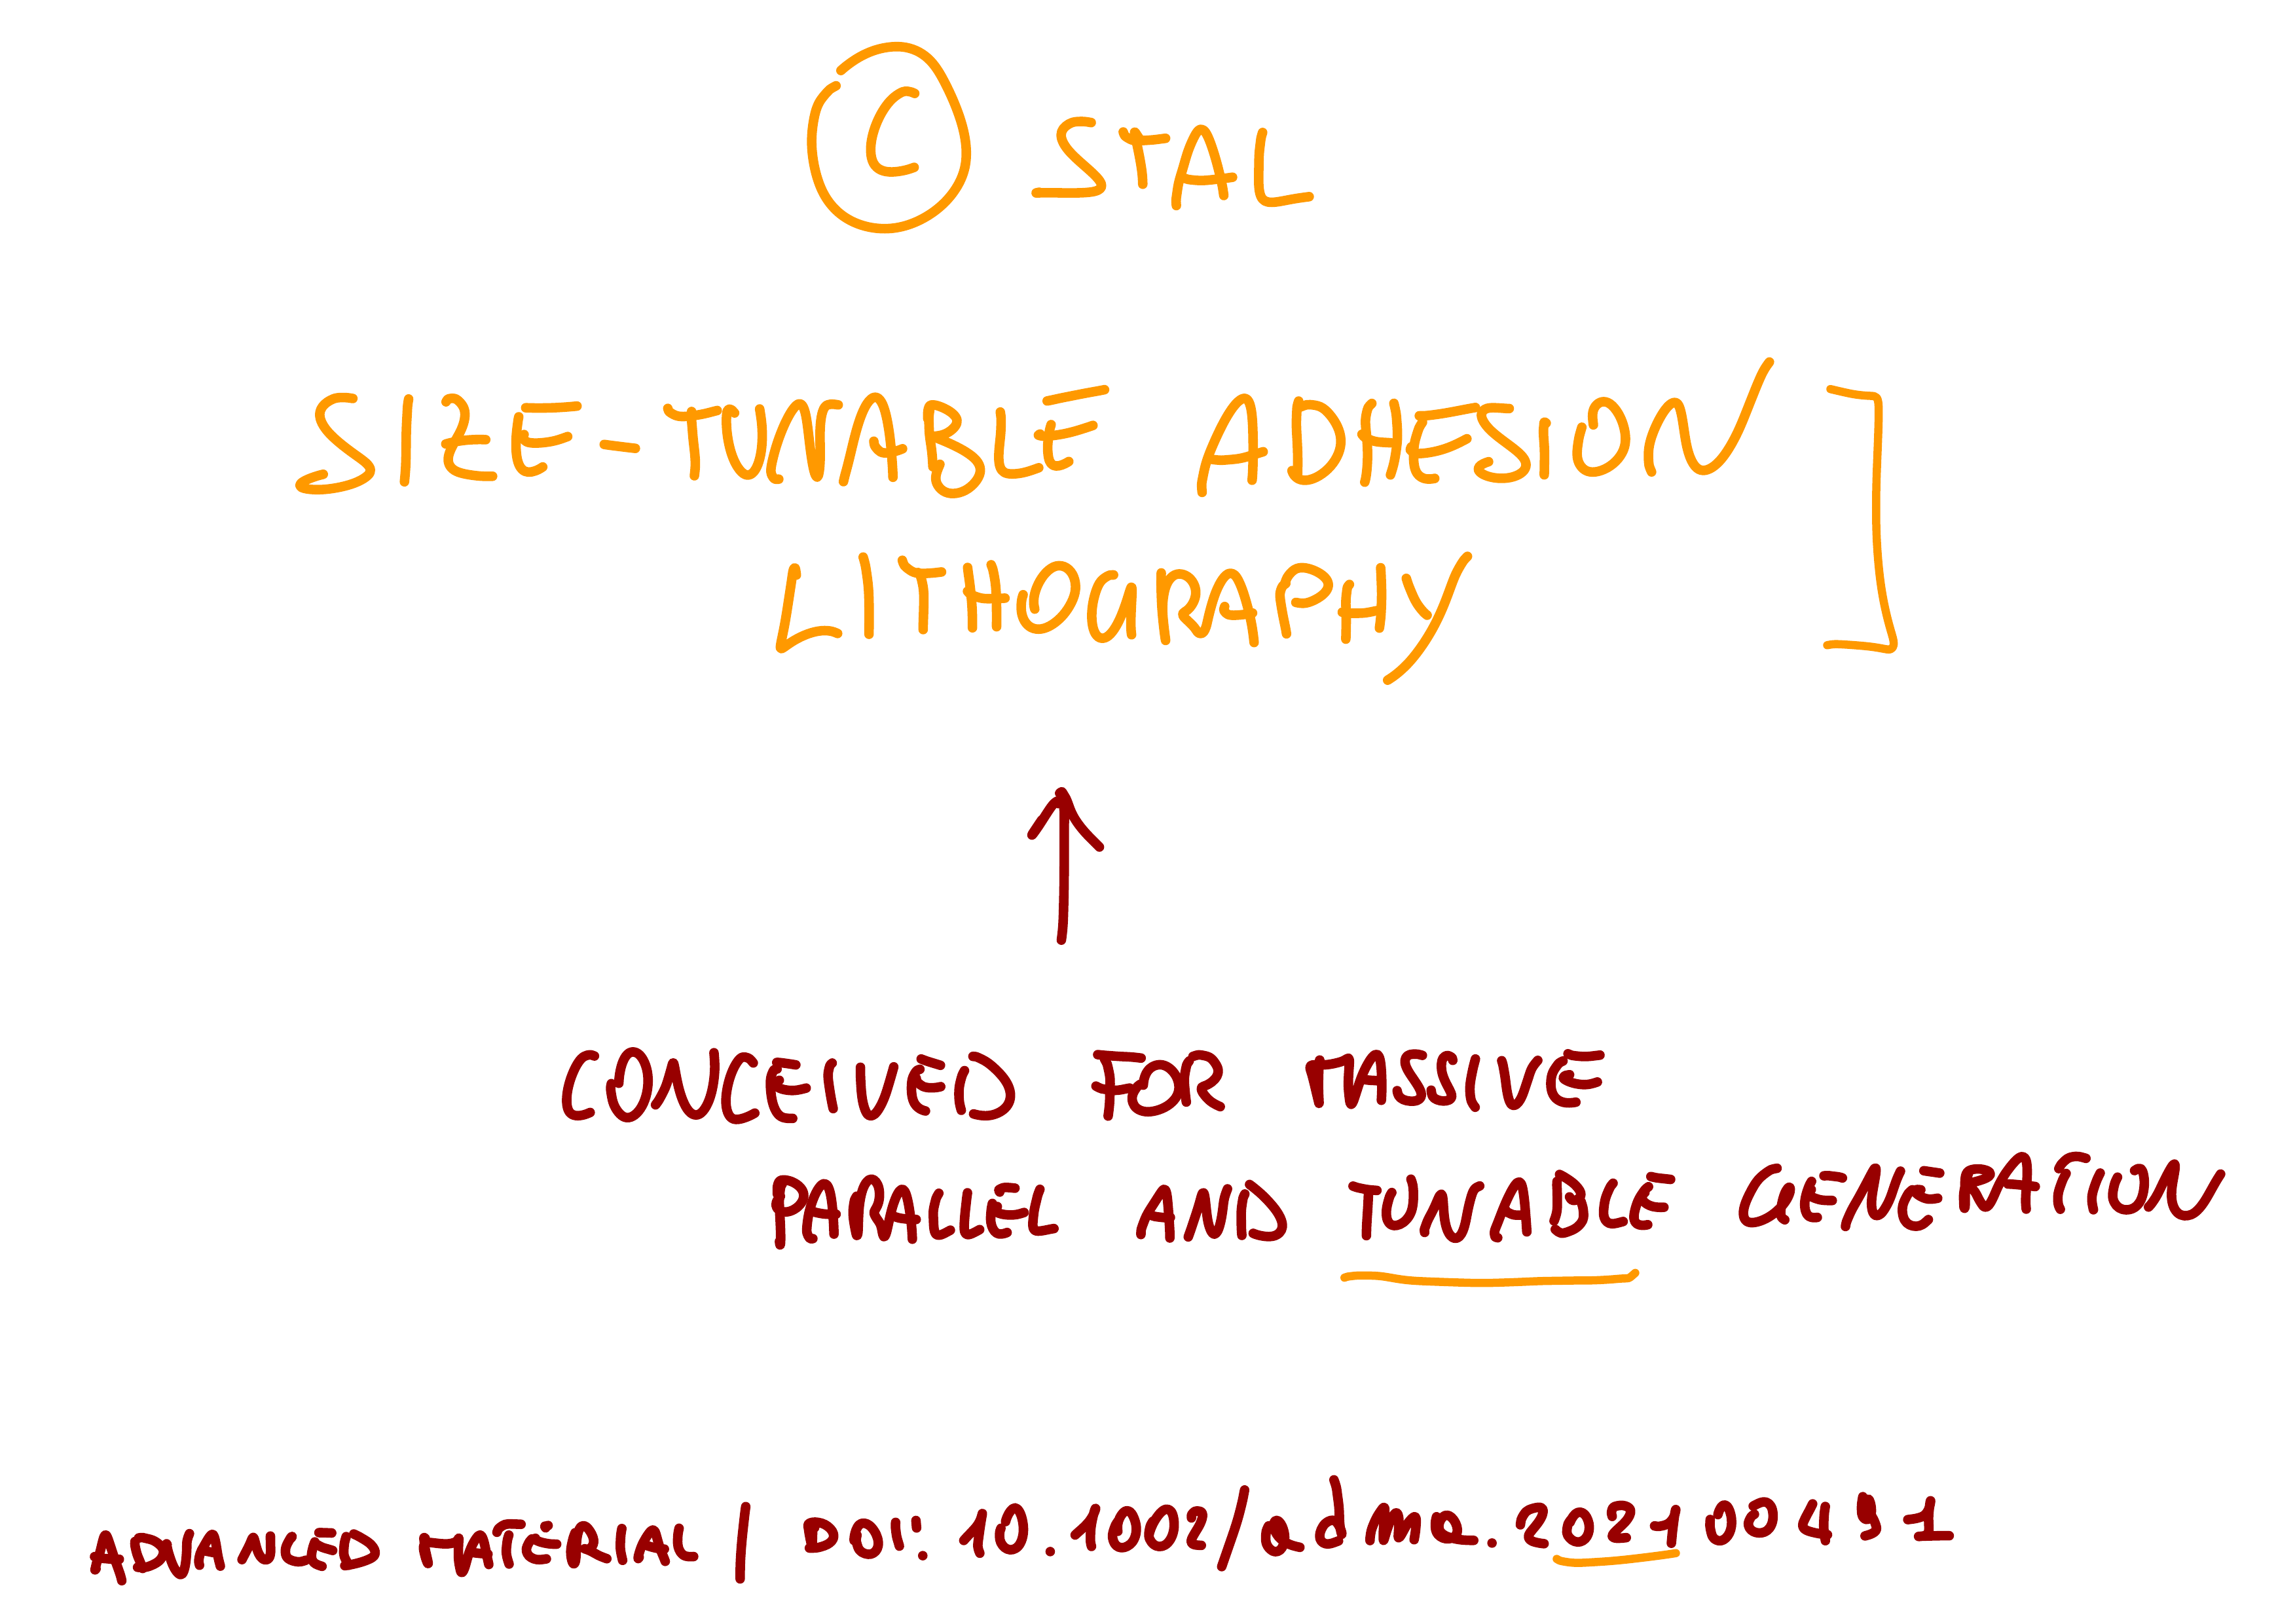 C STAL
SIZE-TUNABLE ADHESION
LITHOGRAPHY
CONCEIVED FOR MASSIVE
PARALLEL AND TUNABLE GENERATION
ADVANCED MATERIAL | DOI: 10.1002/adma.202100491